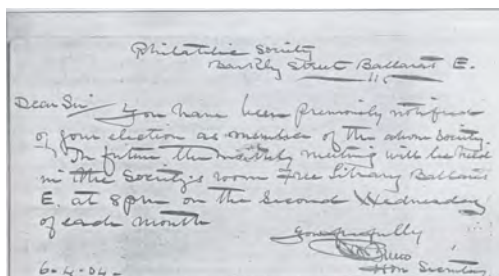 Philatelic Society
Barkly Street Ballarat E.
Dear Sir
You have been previously notified
of your election as member of the above Society.
In future the monthly meeting will be held
in the Society's room Free Library Ballarat
E. at 8pm on the Second Wednesday
of each month
Yours faithfully
Hon Secretary
6-4-04-